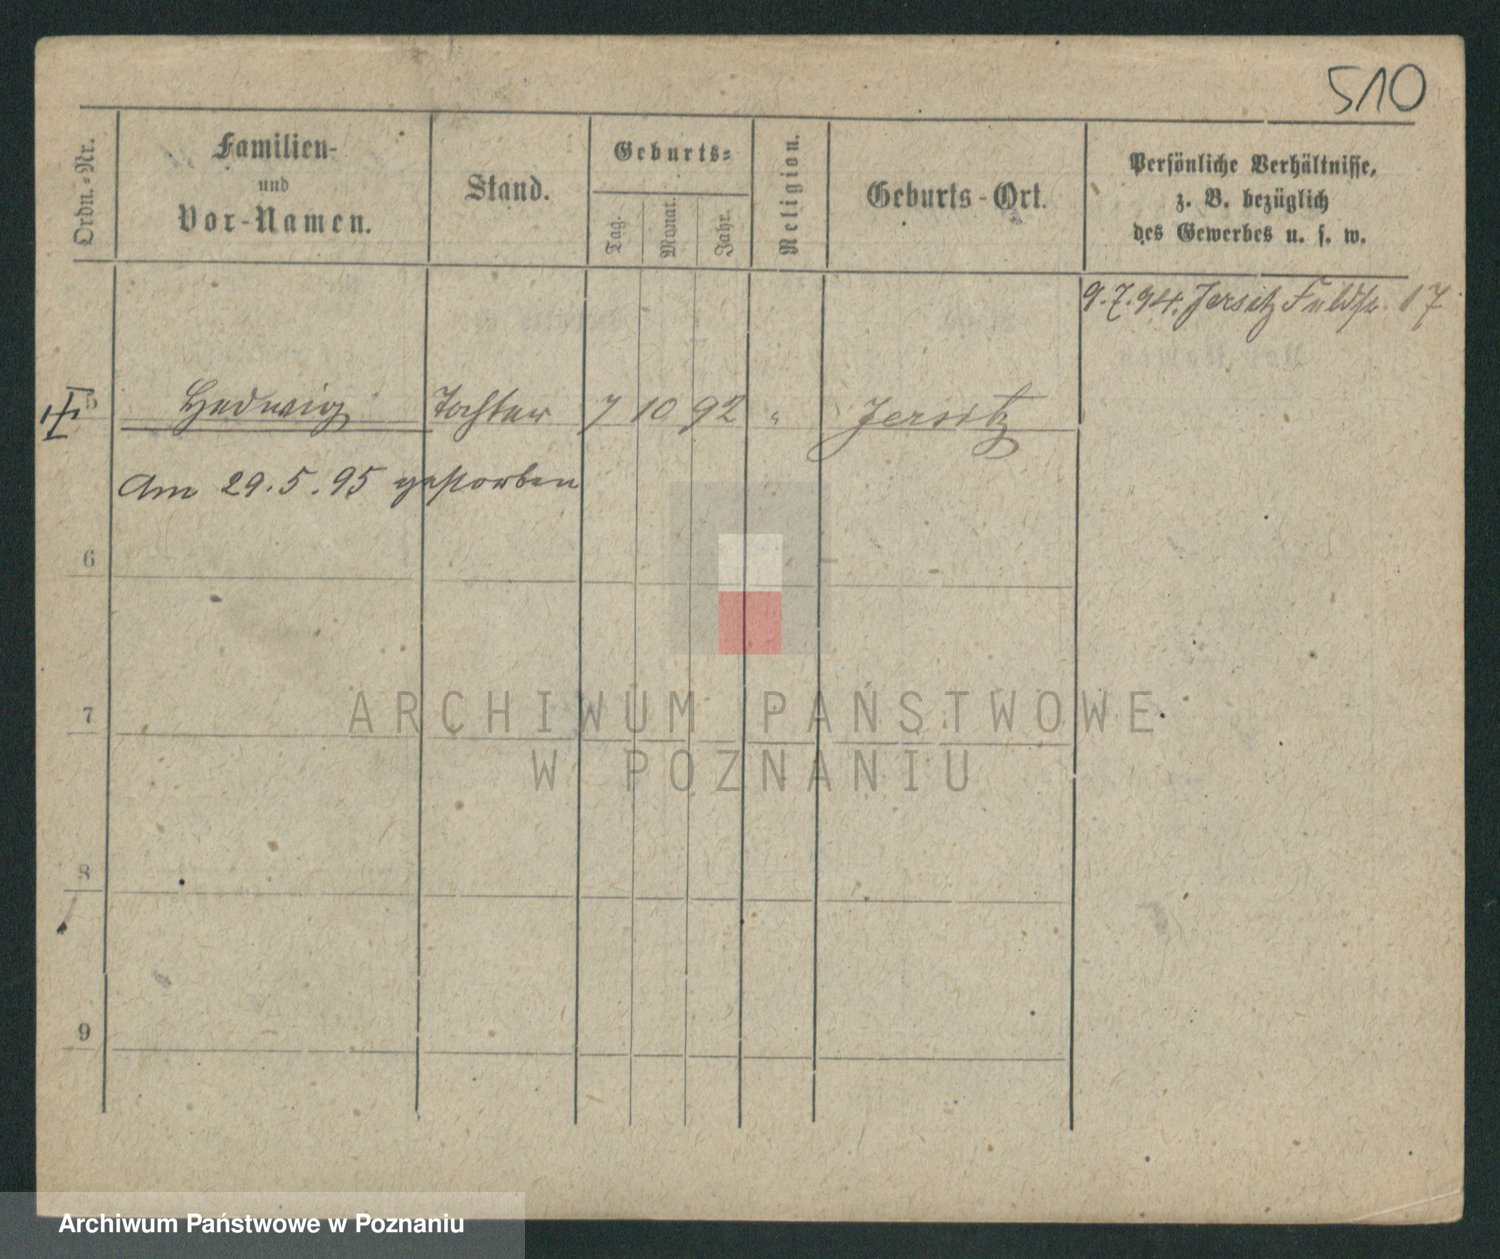 510
Ordn.-Nr.
Familien-
und
Vor-Namen.
Stand.
Geburts-
Tag.
Monat.
Jahr.
Religion.
Geburts-Ort.
Persönliche Verhältnisse,
z. B. bezüglich
des Gewerbes u. s. w.
9.7.94. Jersitz Feldstr. 17
5 Hedwig Tochter 7 10 92 " Jersitz
Am 29.5.95 gestorben
6
7
8
9
ARCHIWUM PAŃSTWOWE
W POZNANIU
Archiwum Państwowe w Poznaniu